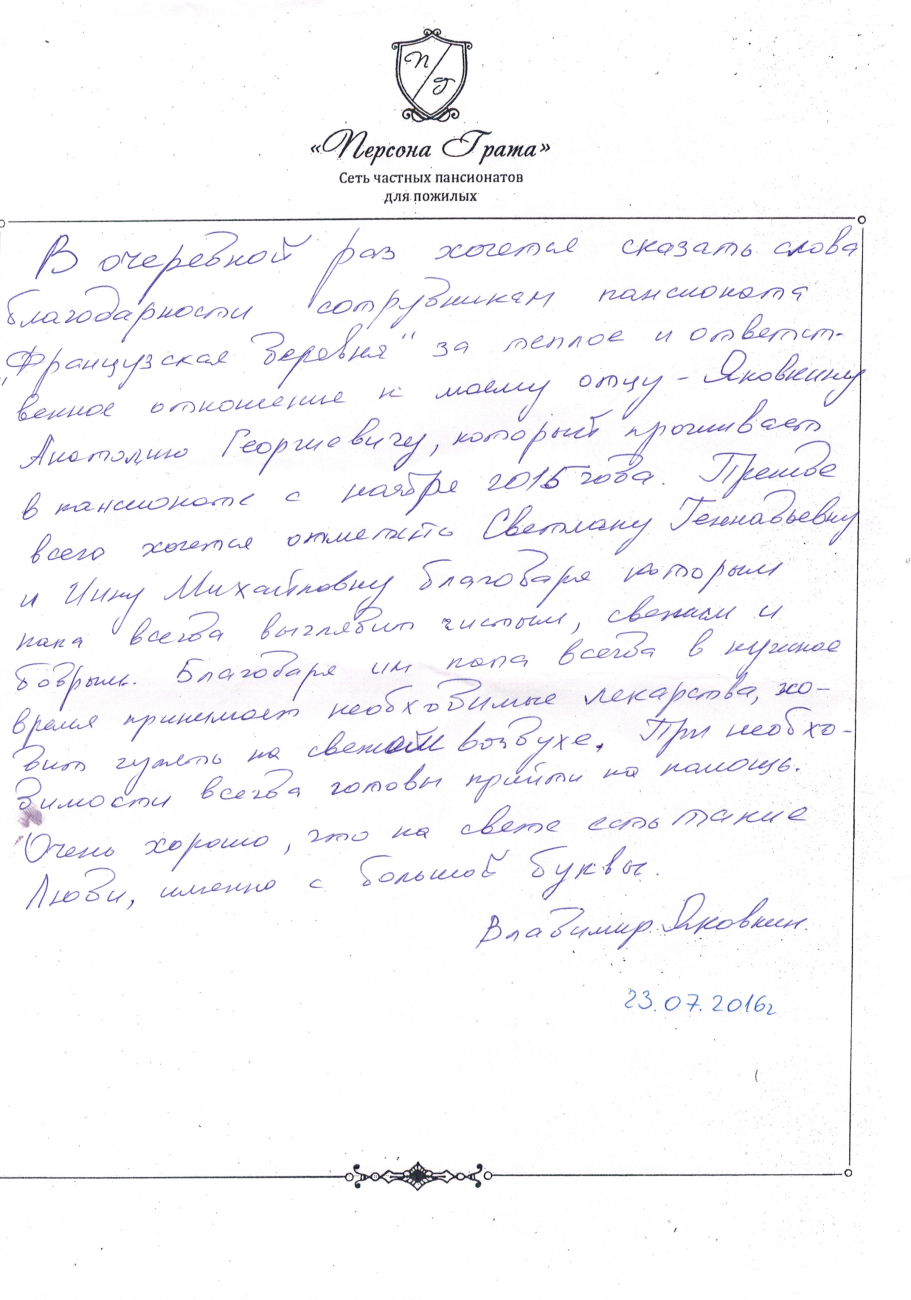 П Г
«Персона Грата»
Сеть частных пансионатов
для пожилых
В очередной раз хочется сказать слова
благодарности сотрудникам пансионата
„Французская деревня" за теплое и ответст-
венное отношение к моему отцу - Яковкину
Анатолию Георгиевичу, который проживает
в пансионате с ноября 2015 года. Прежде
всего хочется отметить Светлану Геннадьевну
и Инну Михайловну благодаря которым
папа всегда выглядит чистым, свежим и
бодрым. Благодаря им папа всегда в нужное
время принимает необходимые лекарства, хо-
дит гулять на свежем воздухе. При необхо-
димости всегда готовы прийти на помощь.
Очень хорошо, что на свете есть такие
Люди, именно с большой буквы.
Владимир Яковкин.
23.07.2016г